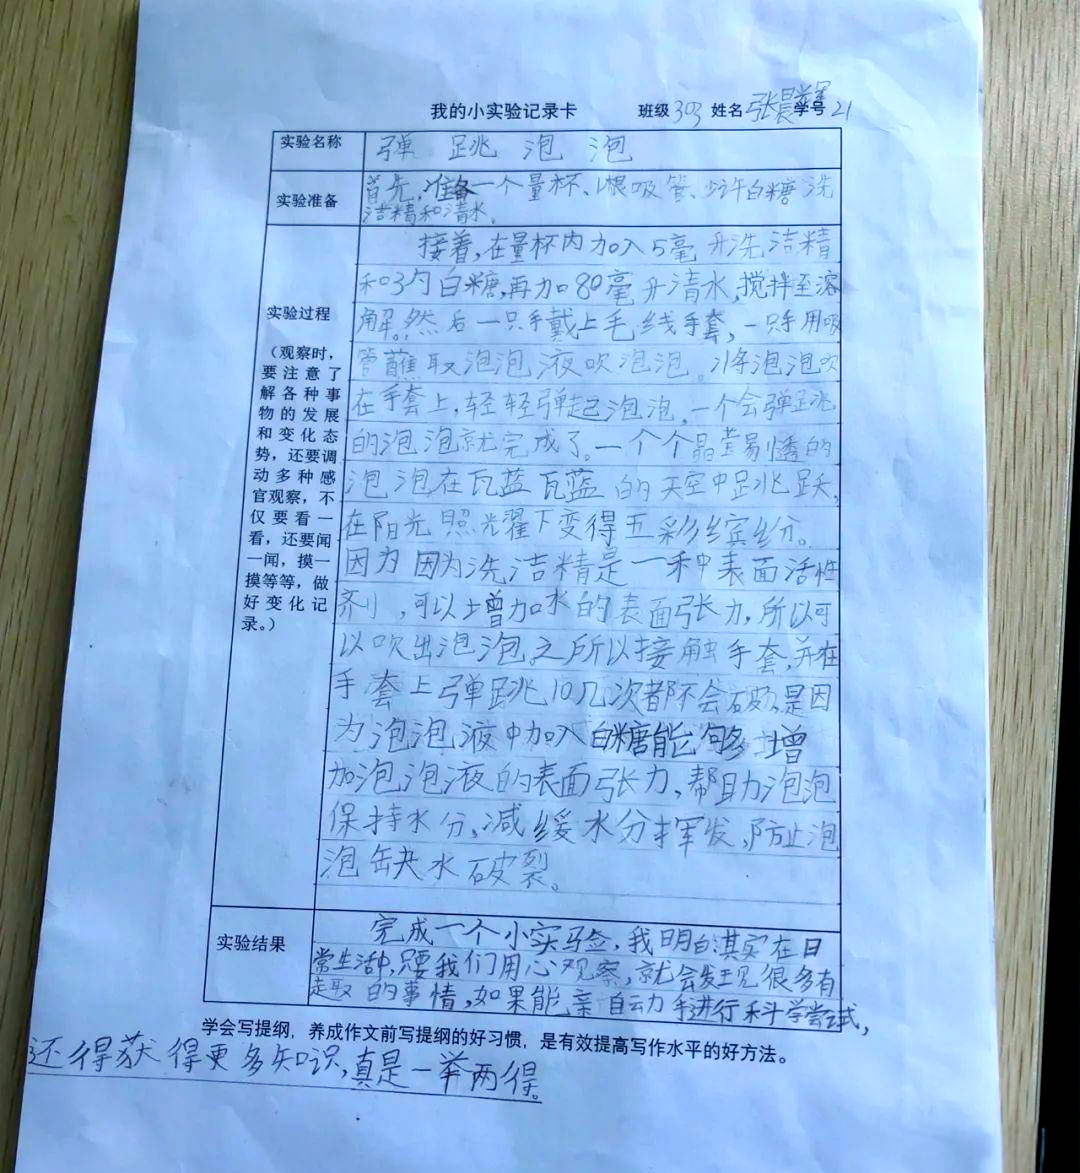 我的小实验记录卡 班级303 姓名张晨 学号21
实验名称 弹跳泡泡
实验准备
首先,准备一个量杯、1根吸管、少许白糖洗
洁精和清水。
实验过程
(观察时,
要注意了
解各种事
物的发展
和变化态
势,还要调
动多种感
官观察,不
仅要看一
看,还要闻
一闻,摸一
摸等等,做
好变化记
录。)
接着,在量杯内加入5毫升洗洁精
和3勺白糖,再加80毫升清水,搅拌至溶
解。然后一只手戴上毛线手套,一只手用吸
管蘸取泡泡液吹泡泡。将泡泡吹
在手套上,轻轻弹起泡泡,一个会弹跳
的泡泡就完成了。一个个晶莹剔透的
泡泡在瓦蓝瓦蓝的天空中跳跃,
在阳光照耀下变得五彩缤纷。
因为因为洗洁精是一种表面活性
剂,可以增加水的表面张力,所以可
以吹出泡泡。之所以接触手套,并在
手套上弹跳10几次都不会破,是因
为泡泡液中加入白糖能够增
加泡泡液的表面张力,帮助泡泡
保持水分,减缓水分挥发,防止泡
泡缺水破裂。
实验结果
完成一个小实验,我明白:其实在日
常生活中,只要我们用心观察,就会发现很多有
趣的事情,如果能亲自动手进行科学尝试,
学会写提纲,养成作文前写提纲的好习惯,是有效提高写作水平的好方法。
还得获得更多知识,真是一举两得。